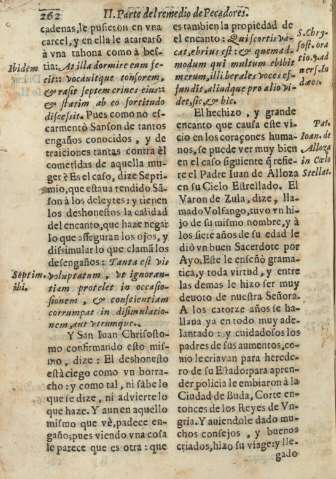 262 II. Parte del remedio de Pecadores.
cadenas, le pusieron en vna
carcel, y en ella le ataearō
à vna tahona como à bes-
tia: At illa dormire eum fe-
cit: vocauitque tonsorem,
& rasit septem crines eius:
& statim ab eo fortitudo
discessit. Pues como no es-
carmentò Sanson de tantos
engaños conocidos, y de
traiciones tantas contra èl
cometidas de aquella mu-
ger? Es el caso, dize Septi-
mio, que estaua rendido Sā-
son à los deleytes: y tienen
los deshonestos la calidad
del encanto, que haze negar
lo que asseguran los ojos, y
dissimular lo que clamā los
desengaños: Tanta est vis
voluptatum, vt ignoran-
tiam protelet in occasio-
sionem, & conscientiam
corrumpat in dissimulatio-
nem, aut vtrumque.
Y San Iuan Chrisosto-
mo confirmando esto mis-
mo, dize: El deshonesto
està ciego como vn borra-
cho: y como tal, ni sabe lo
que se dize, ni advierte lo
que haze. Y aun en aquello
mismo que vè, padece en-
gaños; pues viendo vna cosa
le parece que es otra: que
Ibidem
Septim.
ibi.
es tambien la propiedad de
el encanto: Qui scortis va-
cat, ebrius est: & quemad-
modum qui multum ebibit
merum, illiberales voces ef-
fundit, aliudque pro alio vi-
det, sic & hic.
El hechizo, y grande
encanto que causa este vi-
cio en los coraçones huma-
nos, se puede ver muy bien
en el caso siguiente q̄ refie-
re el Padre Iuan de Alloza
en su Cielo Estrellado. El
Varon de Zula, dize, lla-
mado Volfango, tuvo vn hi-
jo de su mismo nombre, y à
los siete años de su edad le
diò vn buen Sacerdote por
Ayo. Este le enseñò grama-
tica, y toda virtud, y entre
las demas le hizo ser muy
deuoto de nuestra Señora.
A los catorze años se ha-
llaua ya en todo muy ade-
lantado: y cuidadosos los
padres de sus aumentos, co-
mo le criavan para herede-
ro de su Estado; para apren-
der policia le embiaron à la
Ciudad de Buda, Corte en-
tonces de los Reyes de Vn-
gria. Y auiendole dado mu-
chos consejos, y buenos
criados, hizo su viage: y lle-
gado
S. Chry-
sost. ora
Pat.
Ioan. de
Alloza
in Cœlo
Stellat.